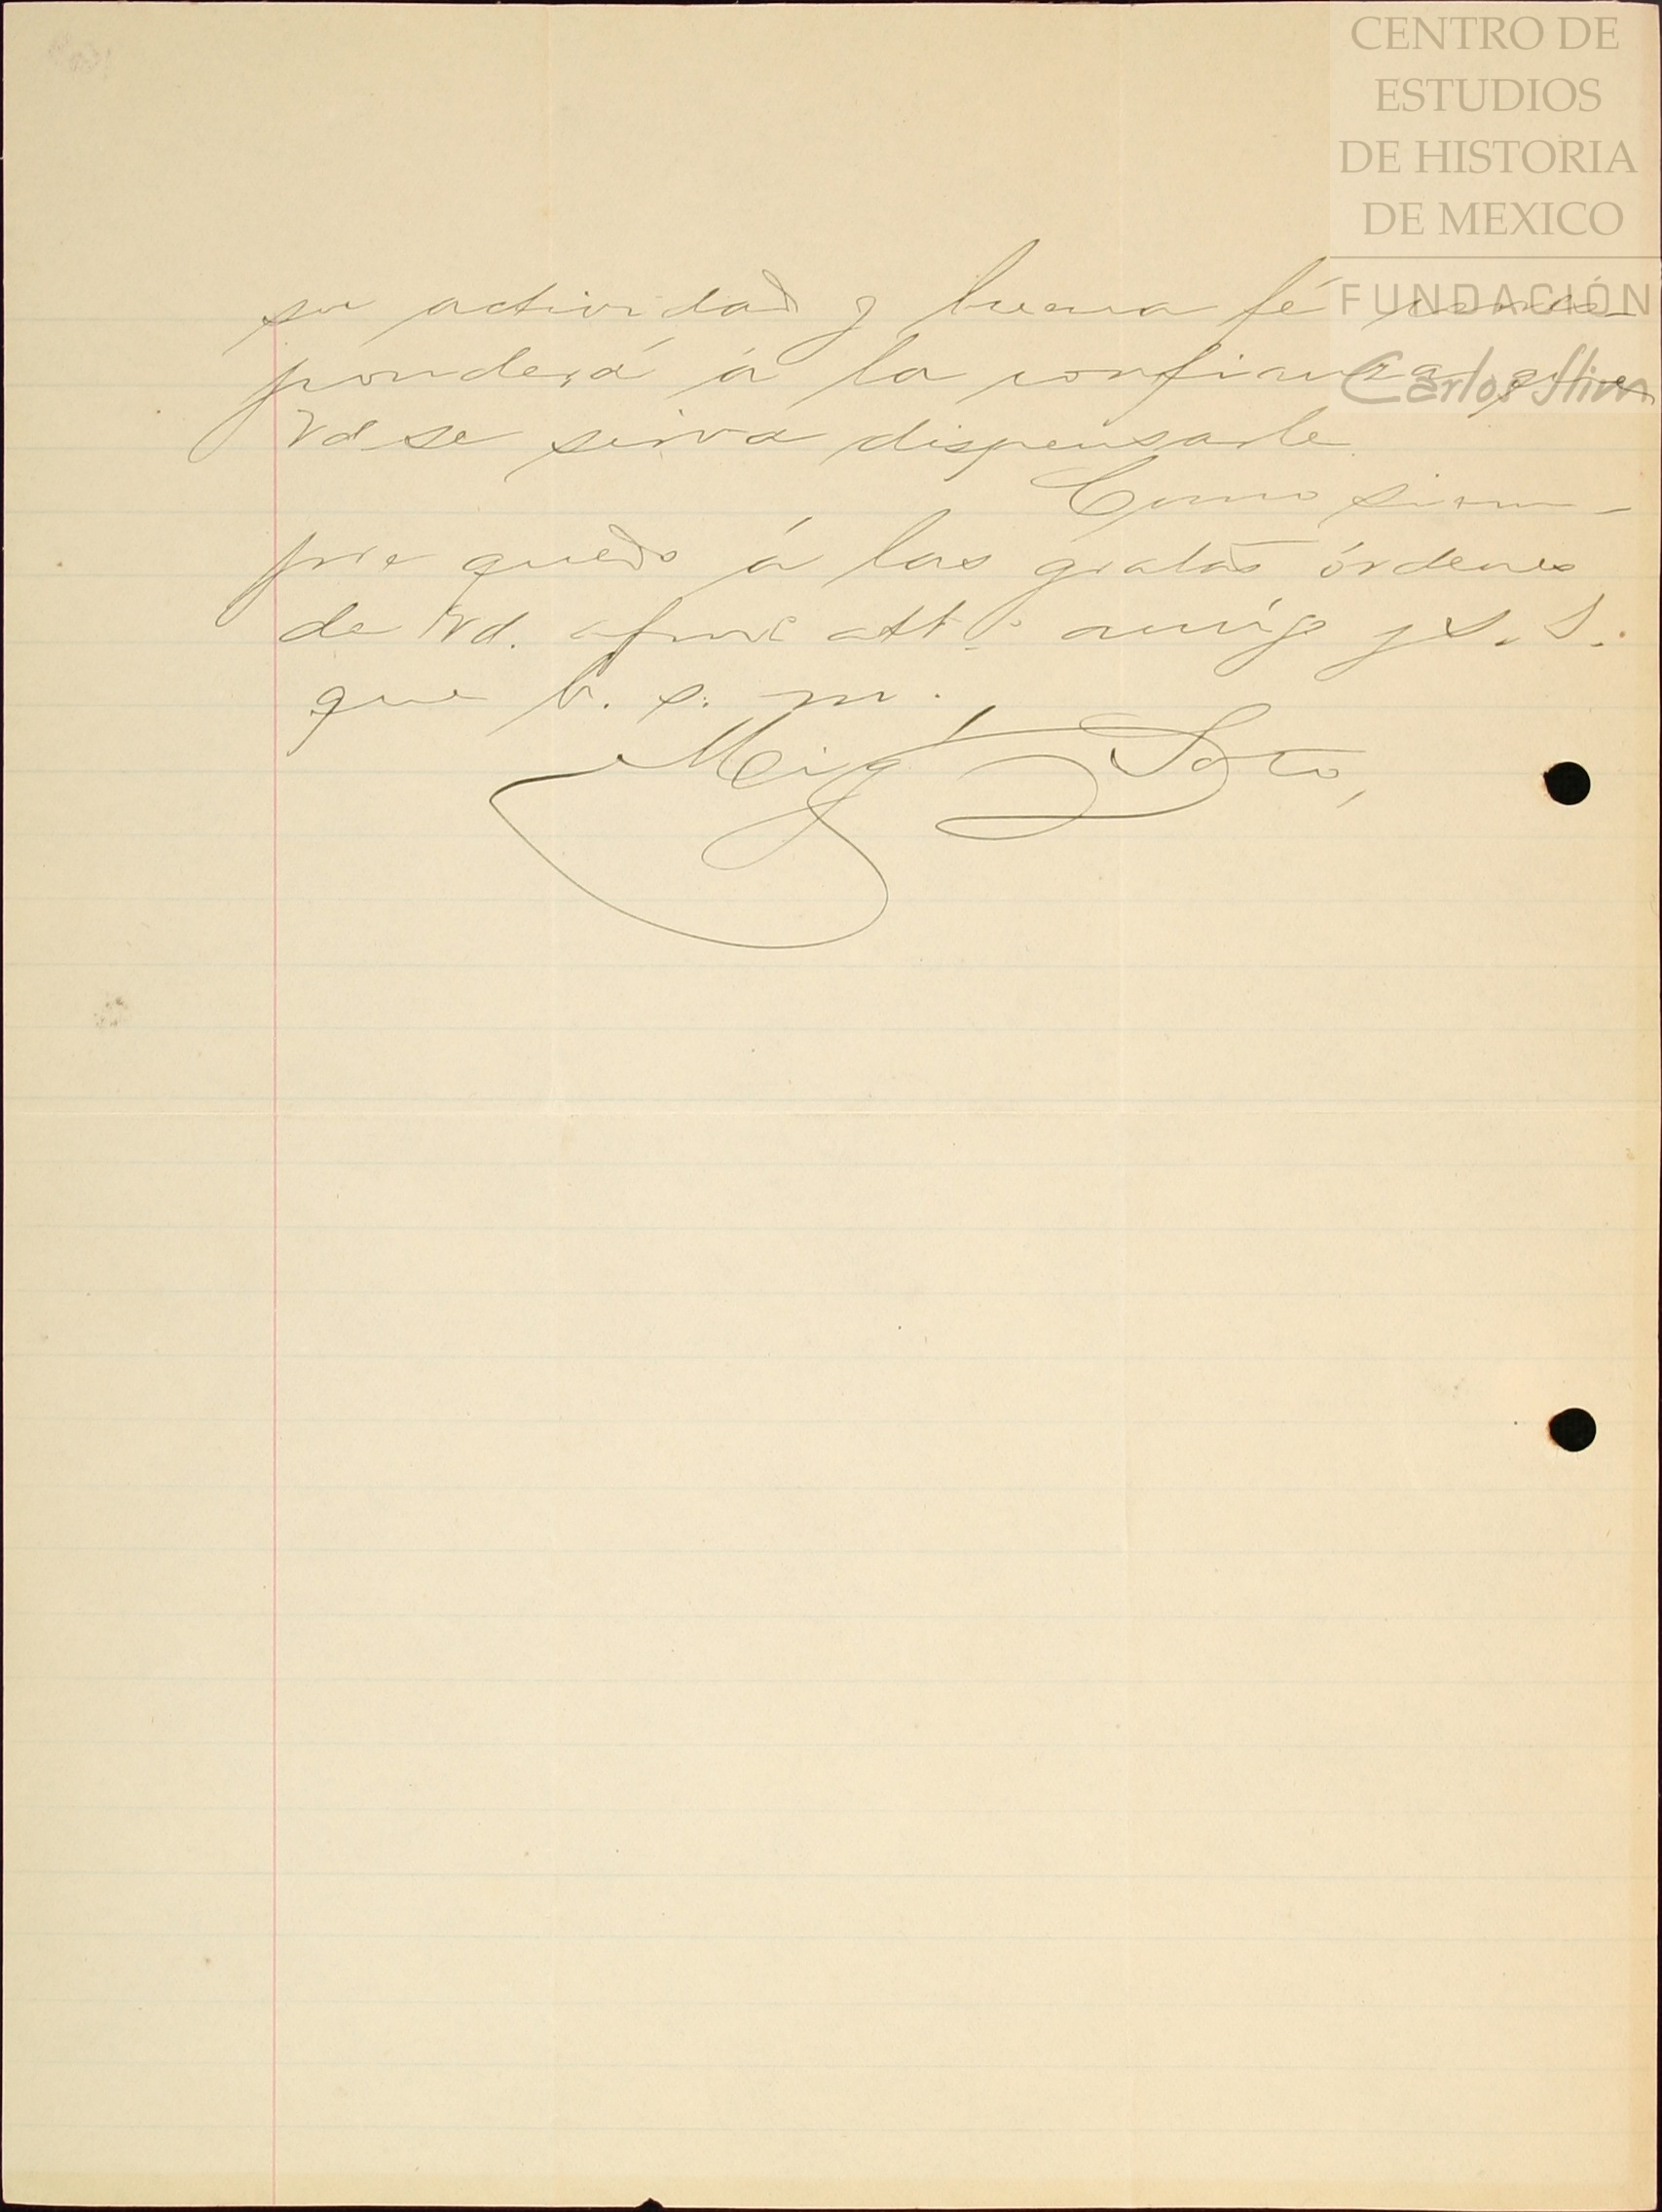 CENTRO DE
ESTUDIOS
DE HISTORIA
DE MEXICO
FUNDACIÓN
Carlos Slim
su actividad y buena fé corres-
ponderá á la confianza que
Vd se sirva dispensarle.
Como siem-
pre quedo á las gratas órdenes
de Vd. afmo att.º amigo y S. S.
que b. s. m.
Mig. Soto,